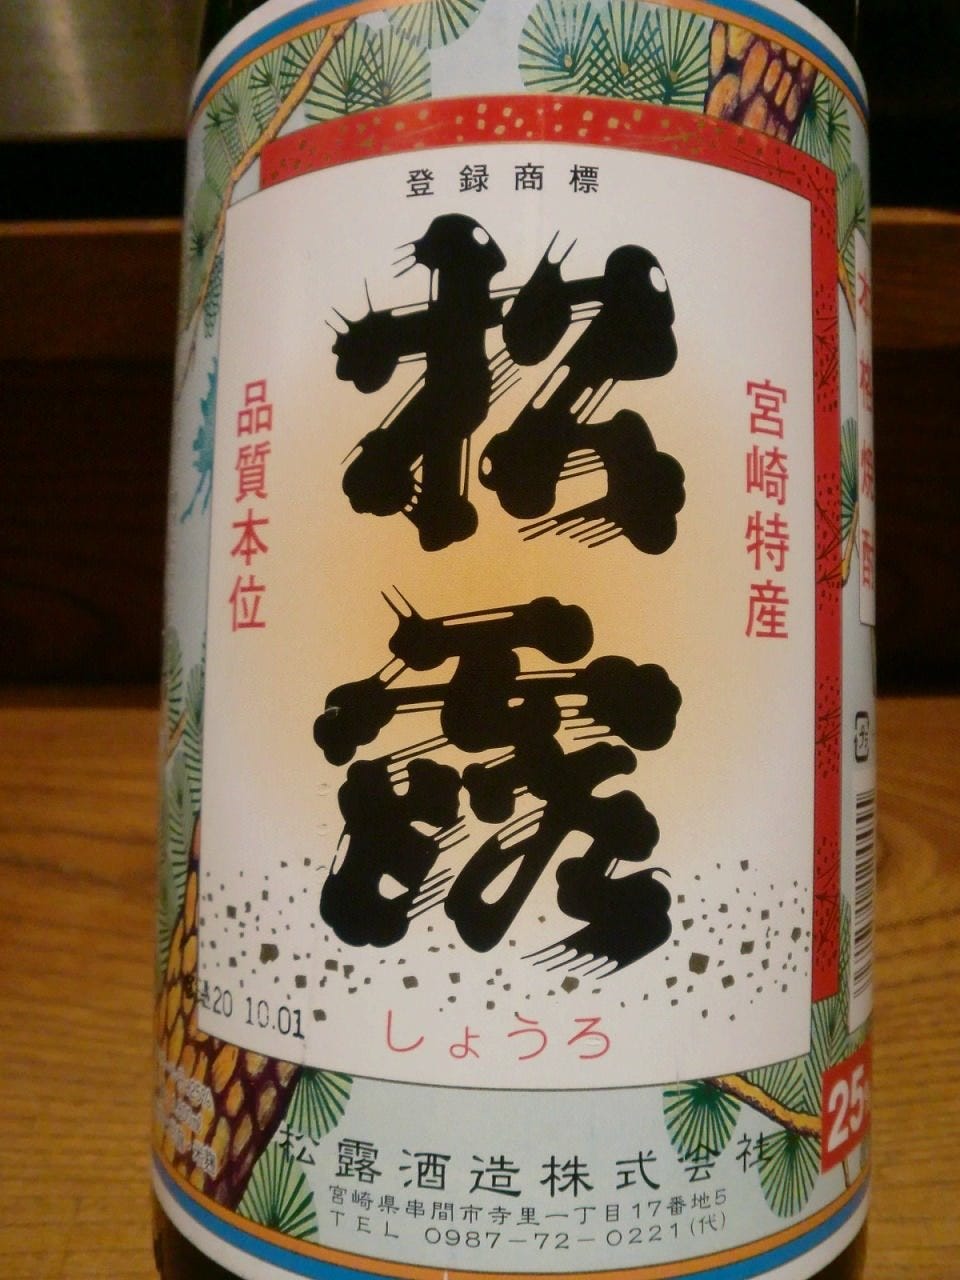 登録商標
松露
宮崎特産
品質本位
本格焼酎
しょうろ
20 10.01
25
松露酒造株式会社
宮崎県串間市寺里一丁目17番地5
TEL 0987-72-0221(代)